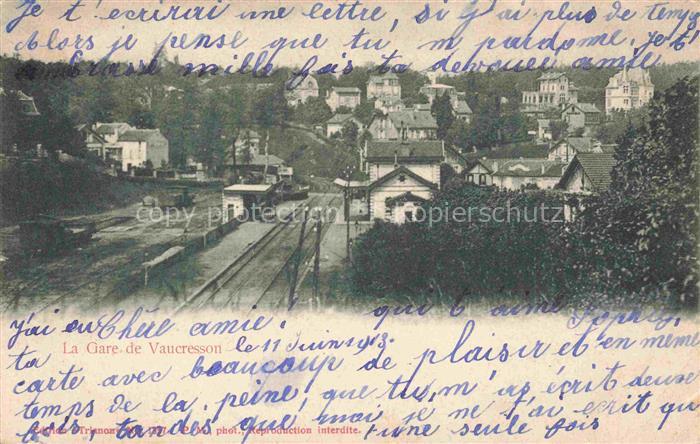 Je t'ecrirai une lettre, si j'ai plus de temps
Alors je pense que tu m pardonne. Je t'
embrasse mille fois ta devouee amie
qui t'aime Sophie,
copy protection Kopierschutz
Chère amie. le 11 Juin 1903.
La Gare de Vaucresson
J'ai eu ta carte avec beaucoup de plaisir et en meme
temps de la peine, que tu, m'as écrit deux
fois, tandes que moi je ne t'ai ecrit qu
une seule fois
Trianon phot., Reproduction interdite.